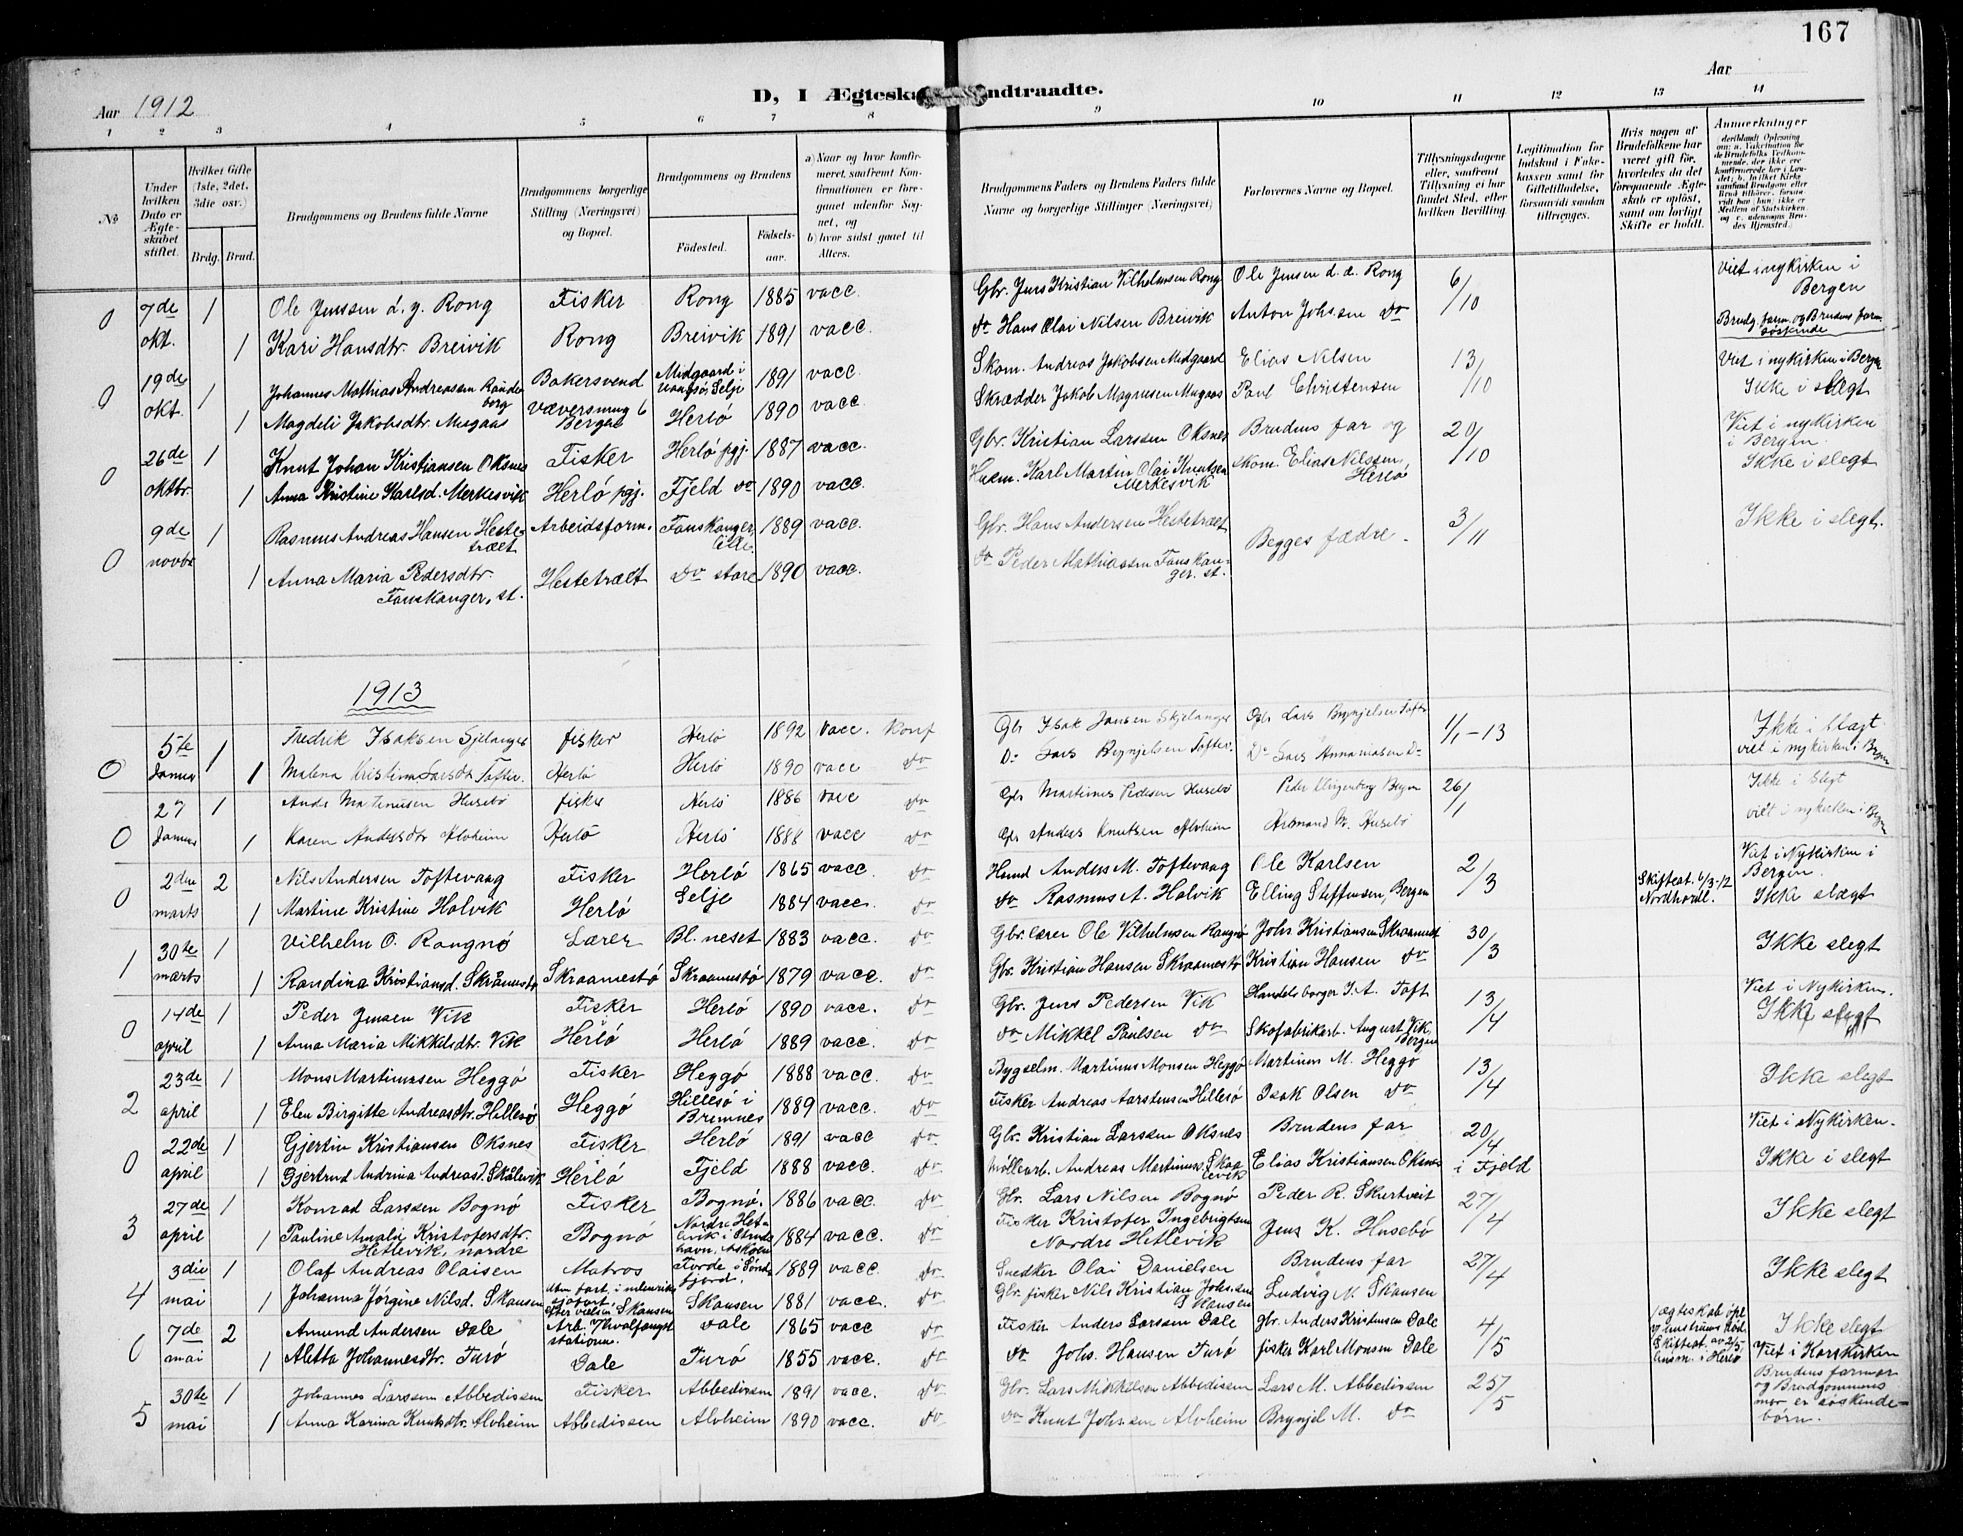 167
Aar 1912
D, I Ægteska
ndtraadte.
Aar
1 2 3 4 5 6 7 8 9 10 11 12 13 14
No
Under hvilken Dato er Ægteskabet stiftet.
Hvilket Gifte (1ste, 2det, 3die osv.)
Brdg. Brud.
Brudgommens og Brudens fulde Navne
Brudgommens borgerlige Stilling (Næringsvei) og Bopæl.
Brudgommens og Brudens
Födested. Födsels-aar.
a) Naar og hvor konfirmeret, saafremt Konfirmationen er foregaaet udenfor Sognet, og
b) hvor sidst gaaet til Alters.
Brudgommens Faders og Brudens Faders fulde Navne og borgerlige Stillinger (Næringsvei)
Forlovernes Navne og Bopæl.
Tillysningsdagene eller, saafremt Tillysning ei har fundet Sted, efter hvilken Bevilling.
Legitimation for Indskud i Enkekassen samt for Giftetilladelse, forsaavidt saadan tiltrænges.
Hvis nogen af Brudefolkene har været gift før, hvorledes da det foregaaende Ægteskab er oplöst, samt om lovligt Skifte er holdt.
Anmærkninger
0 7de okt. 1 Ole Jenssen d. y. Rong Fisker Rong 1885 vacc. Gbr. Jens Kristian Vilhelmsen Rong Ole Jensen d. æ. Rong 6/10 Viet i nykirken i Bergen
1 Kari Hansdtr. Breivik Rong Breivik 1891 vacc. do Hans Olai Nilsen Breivik Anton Johsen do Brudg. farm. og Brudens farm. søskinde
0 19de okt. 1 Johannes Mathias Andreassen Bakersvend Midgaard i Selje 1891 vacc. Skom. Andreas Jakobsen Midgaard Elias Nilsen 13/10 Viet i nykirken i Bergen
1 Magdeli Jakobsdtr. Mugaas Væversmug 6 Bergen Herlö 1890 vacc. Skrædder Jakob Magnusen Mugaas Paul Christensen Ikke i slegt
0 26de oktbr. 1 Knut Johan Kristiansen Oksnes Fisker Herlö pgj. 1887 vacc. Gbr. Kristian Larssen Oksnes Brudens far og 20/10 Viet i nykirken i Bergen.
1 Anna Kristine Karlsd. Merkesvik Herlö pgj. Fjeld do 1890 vacc. Husm. Karl Martin Olai Knutsen Merkesvik skom. Elias Nilssen, Herlö Ikke i slegt
0 9de novbr 1 Rasmus Andreas Hansen Hestetræet Arbeidsform. Fanskanger, lille. 1889 vacc. Gbr. Hans Andersen Hestetræet Begges fædre. 3/11 Ikke i slegt.
1 Anna Maria Pedersdtr. Fanskanger, st. Hestetræet do store 1890 vacc. do Peder Mathiassen Fanskanger. st.
1913
0 5te Januar 1 Fredrik Isaksen Sjelanger fisker Herlö 1892 vacc. Konf Gbr Isak Jansen Skjelanger Gbr Lars Brynjelsen Tofte 1/1-13 Ikke i Slægt.
1 Malena Kristina Larsdtr Tofte Herlö Herlö 1890 vacc do Do Lars Brynjelsen Tofte. viet i nykirken i Bergen
0 27 Januar 1 Martinusen Husebö fisker Herlö 1886 vacc do Gbr Martinus Pedersen Husebö Peder Klingenberg Bergen 26/1 Ikke i Slegt
1 Karen Andersdtr Alvheim Herlö Herlö 1888 vacc do Gbr Anders Knutsen Alvheim Husebö viet i nykirken i Bergen
0 2den marts 2 Nils Andersen Toftevaag Fisker Herlö 1865 vacc. do Husmd Anders M. Toftevaag Ole Karlsen 2/3 Skifteat. 6/3-12 Nordhordl. Viet i Nykirken i Bergen.
1 Martine Kristine Halvik Herlö Selje 1884 vacc. do do Rasmus A. Halvik Elling Steffensen, Bergen Ikke slægt
1 30te marts 1 Vilhelm O. Rongnö Lærer Bl. neset 1883 vacc. do Gbr. lærer Ole Vilhelmsen Rongnö Johs Kristiansen Skraamestö 30/3 Ikke slegt
1 Randina Kristiansd. Skråmestö Skraamestö Skraamestö 1879 vacc. do Gbr. Kristian Hansen Skraamestö Kristian Hansen do
0 14de april 1 Peder Jensen Vik Fisker Herlö 1890 vacc. do Gbr. Jens Pedersen Vik Handelsborger J. A. Toft 13/4 Viet i Nykirken.
1 Anna Maria Mikkelsdtr. Vik Herlö Herlö 1889 vacc. do do Mikkel Paulsen do Skofabrikarb. August Vik, Bergen Ikke slegt
2 23de april 1 Mons Martinusen Heggö Fisker Heggö 1888 vacc. do Bygselm. Martinus Monsen Heggö Martinus M. Heggö 13/4 Ikke slegt
1 Elen Birgitte Andreasdtr. Hillesö Heggö Hillesö i Bremnes 1889 vacc. do Fisker Andreas Aarstensen Hillesö Isak Olsen do
0 22de april 1 Gjertin Kristiansen Oksnes Fisker Herlö 1891 vacc do Gbr. Kristian Larssen Oksnes Brudens far 20/4 Viet i Nykirken.
1 Gjertrud Andrina Andreasd. Skålevik Herlö Fjeld 1888 vacc. do Möllearb. Andreas Martinuss. Skaalevik Elias Kristiansen Oksnes i Fjeld Ikke i slegt
3 27de april 1 Konrad Larssen Bognö Fisker Bognö. 1886 vacc. do Gbr. Lars Nilsen Bognö Peder R. Skurtveit 27/4 Ikke slegt
1 Pauline Amalie Kristofersdtr. Hetlevik, nordre Bognö Nordre Hetlevik i Strudshavn, Askøen 1884 vacc. do Fisker Kristofer Ingebrigtsen Nordre Hetlevik Jens K. Husebö
4 3die mai 1 Olaf Andreas Olaisen Matros Förde i Söndfjord. 1889 vacc. do Snedker Olai Danielsen Brudens far 27/4 Ikke slegt
1 Johanna Jörgine Nilsd. Skansen Skansen Skansen 1881 vacc. do Gbr. fisker Nils Kristian Johnsen Skansen Ludvig M. Skansen
0 7de mai 2 Amund Andersen Dale Arb. Hvalfangststationen. Dale 1865 vacc do Fisker Anders Larssen Dale gbr. Anders Kristensen Dale 4/5 Ikke slegt
1 Aletta Johannesdtr. Turö Dale Turö 1855 vacc. do do Johs. Hansen Turö fisker Karl Monsen Dale Viet i Korskirken
5 30te mai 1 Johannes Larssen Abbedissen Fisker Abbedissen 1891 vacc. do Gbr. Lars Mikkelsen Abbedissen Lars M. Abbedissen 25/5 Brudens farmor og Brudgommens mor er söskendebörn.
1 Anna Karina Knutsdtr. Alvheim Abbedissen Alvheim 1890 vacc. do do Knut Johsen Alvheim Brynjel M. do